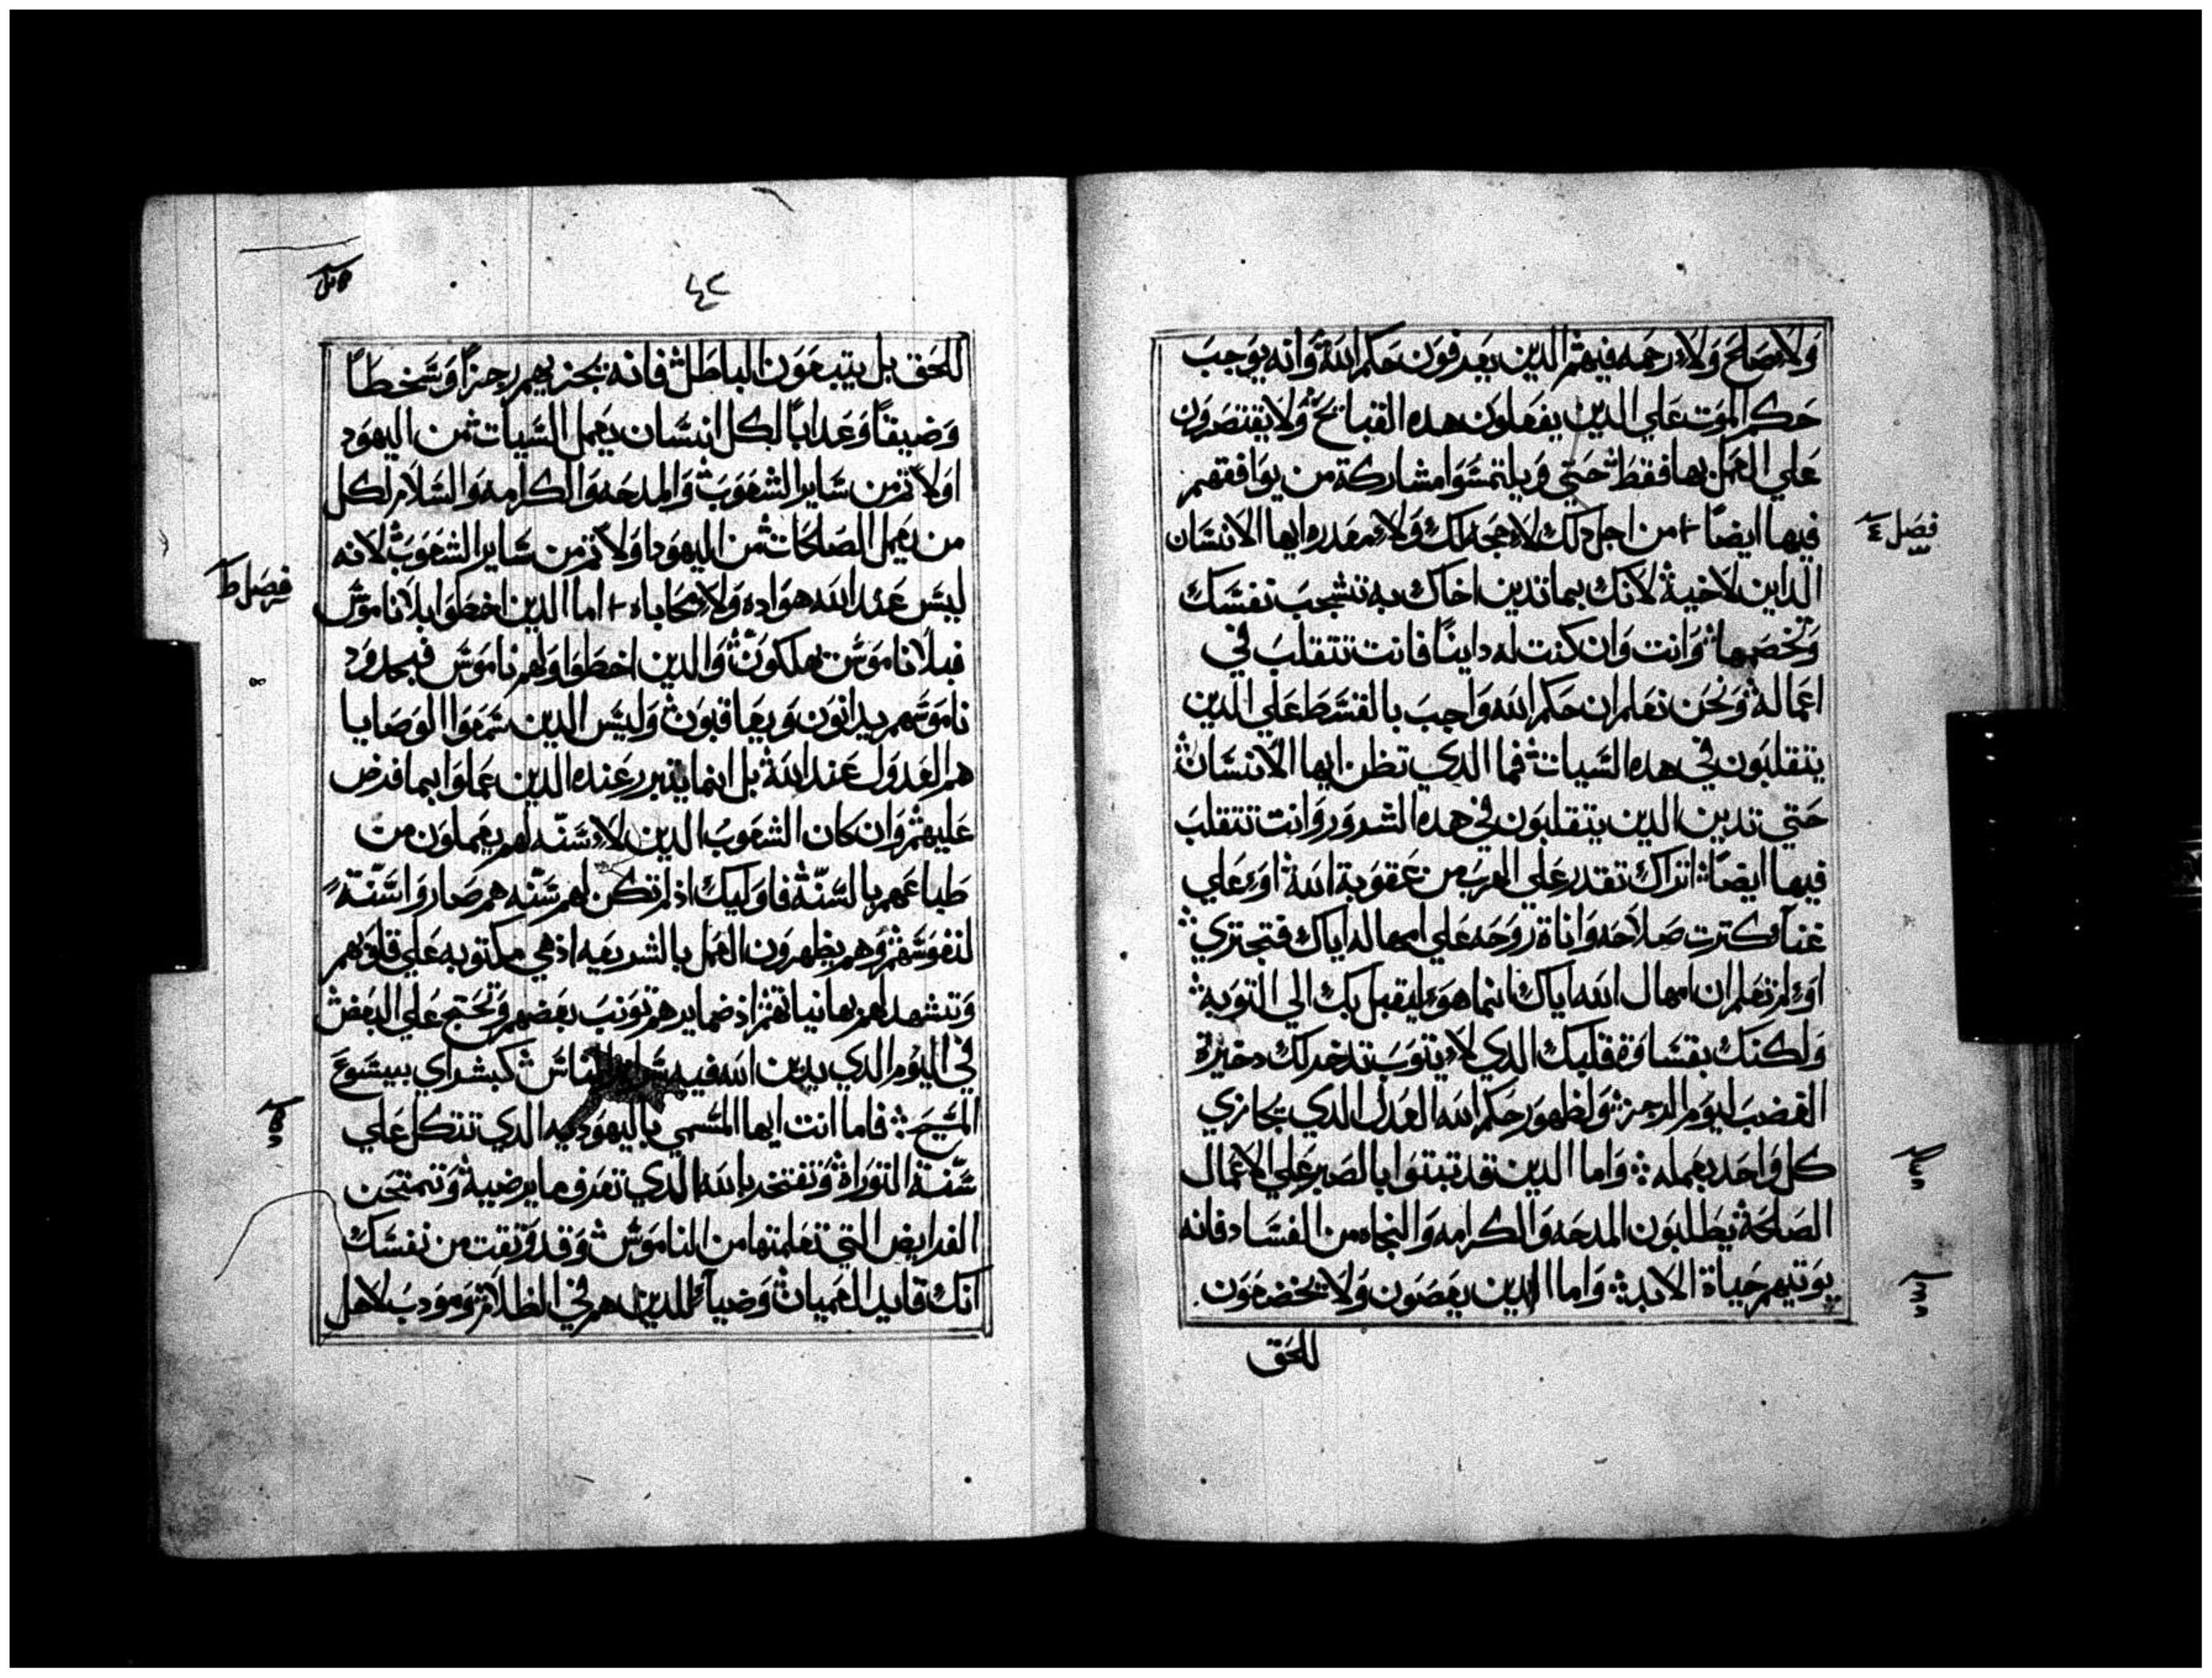 ولا صلح ولا رحمه فيهم الدين يعرفون حكم الله وانه يوجب
حكم الموت علي الدين يفعلون هده القبايح ولا يقتصرون
علي العمل بها فقط حتي ويلتمسوا مشاركة من يوافقهم
فيها ايضا + من اجل دلك لا حجه لك ولا معدره ايها الانسان
فصل ٤
الداين لاخيه لانك بما تدين اخاك به تشجب نفسك
وتخصمها وانت وان كنت له داينا فانت تتقلب في
اعماله ونحن نعلم ان حكم الله واجب بالقسط علي الدين
يتقلبون في هده السيات فما الدي تظن ايها الانسان
حتي تدين الدين يتقلبون في هده الشرور وانت تتقلب
فيها ايضا اتراك تقدر علي الهرب من عقوبة الله او علي
غنا وكترت صلاحه واناة روحه علي امهاله اياك فتجتري
او لم تعلم ان امهال الله اياك انما هو ليقبل بك الي التوبه
ولكنك بقساوة قلبك الدي لا يتوب تدخر لك دخيرة
الغضب ليوم الرجز ولظهور حكم الله العدل الدي يجازي
كل واحد بعمله واما الدين قد تبتوا بالصبر علي الاعمال
الصالحة يطلبون المدحه والكرامه والنجاه من الفساد فانه
يوتيهم حياة الابد واما الدين يعصون ولا يخضعون
للحق
٤٢
للحق بل يتبعون الباطل فانه يجزيهم رجزا وسخطا
وضيقا وعدابا لكل انسان يعمل السيات من اليهود
اولا تم من ساير الشعوب والمدحه والكرامه والسلام لكل
من يعمل الصالحات من اليهود اولا تم من ساير الشعوب لانه
ليس عند الله هواده ولا محاباه + اما الدين اخطوا بلا ناموس
فصل ط
فبلا ناموس يهلكون والدين اخطوا ولهم ناموس فبحدود
ناموسهم يدانون ويعاقبون وليس الدين سمعوا الوصايا
هم العدول عند الله بل انما يتبرر عنده الدين عملوا بما فرض
عليهم وان كان الشعوب الدين لا سنه لهم يعملون من
طباعهم بالسنه فاوليك اذ لم تكن لهم سنه هم صاروا سنة
لنفوسهم وهم يظهرون العمل بالشريعه اذ هي مكتوبه علي قلوبهم
وتشهد لهم بها نياتهم اذ ضمايرهم تونب بعضهم وتحتج علي البعض
في اليوم الدي يدين الله فيه سراير الناس كبشراي بيسوع
المسيح فاما انت ايها المسمي باليهوديه الدي تتكل علي
سنة التوراة وتفتخر بالله الدي تعرف ما يرضيه وتمتحن
الفرايض التي تعلمتها من الناموس وقد وتقت من نفسك
انك قايد العميان وضيا للدين هم في الظلام ومودب لاهل